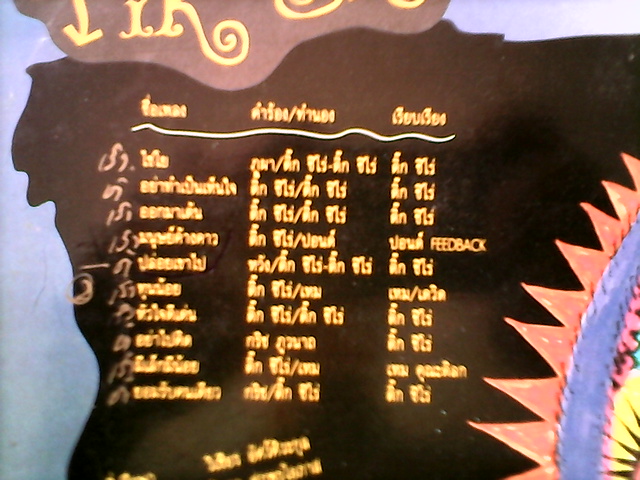 ชื่อเพลง คำร้อง/ทำนอง เรียบเรียง
เร็ว. ไชโย ภูผา/ติ๊ก ชีโร่-ติ๊ก ชีโร่ ติ๊ก ชีโร่
ช้า อย่าทำเป็นเห็นใจ ติ๊ก ชีโร่/ติ๊ก ชีโร่ ติ๊ก ชีโร่
เร็ว ออกมาเต้น ติ๊ก ชีโร่/ติ๊ก ชีโร่ ติ๊ก ชีโร่
เร็ว มนุษย์ค้างคาว ติ๊ก ชีโร่/ปอนด์ ปอนด์ FEEDBACK
ช้า ปล่อยเขาไป หวัง/ติ๊ก ชีโร่-ติ๊ก ชีโร่ ติ๊ก ชีโร่
เร็ว ทุนน้อย ติ๊ก ชีโร่/เทม เทม/เดวิด
หัวใจดีเด่น ติ๊ก ชีโร่/ติ๊ก ชีโร่ ติ๊ก ชีโร่
อย่าไปคิด กริช ภูวนาถ ติ๊ก ชีโร่
เร็ว มีเล็กมีน้อย ติ๊ก ชีโร่/เทม เทม
ช้า ยอมรับคนเดียว กริช/ติ๊ก ชีโร่ ติ๊ก ชีโร่